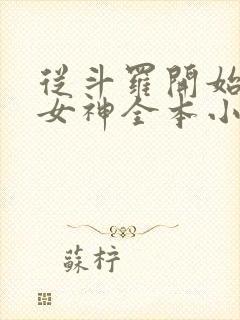 從斗羅開始
女神全本小
蘇柠